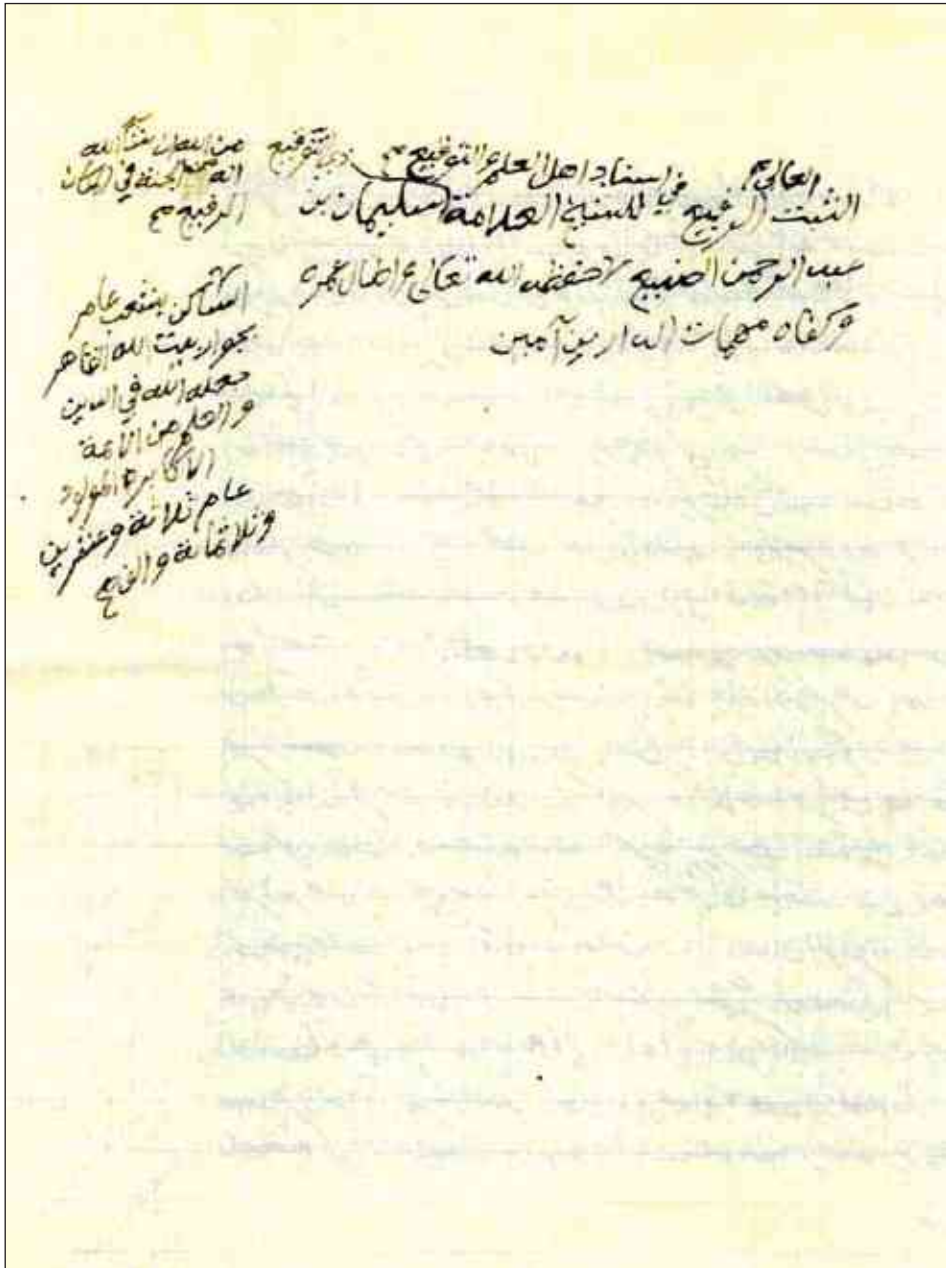 العالي صح
الثبت الرفيع في اسناد اهل العلم والتوقيع صح
للشيخ العلامة سليمان بن
عبد الرحمن الصنيع حفظه الله تعالى واطال عمره
وكفاه مهمات الدارين آمين
من الله
انه الجنة في المكان
الرفيع صح
الساكن بشعب عامر
بجوار بيت الله القاهر
جعله الله في الدين
والعلم من الائمة
الاكابر المولود
عام ثلاثة وعشرين
وثلاثمائة والف